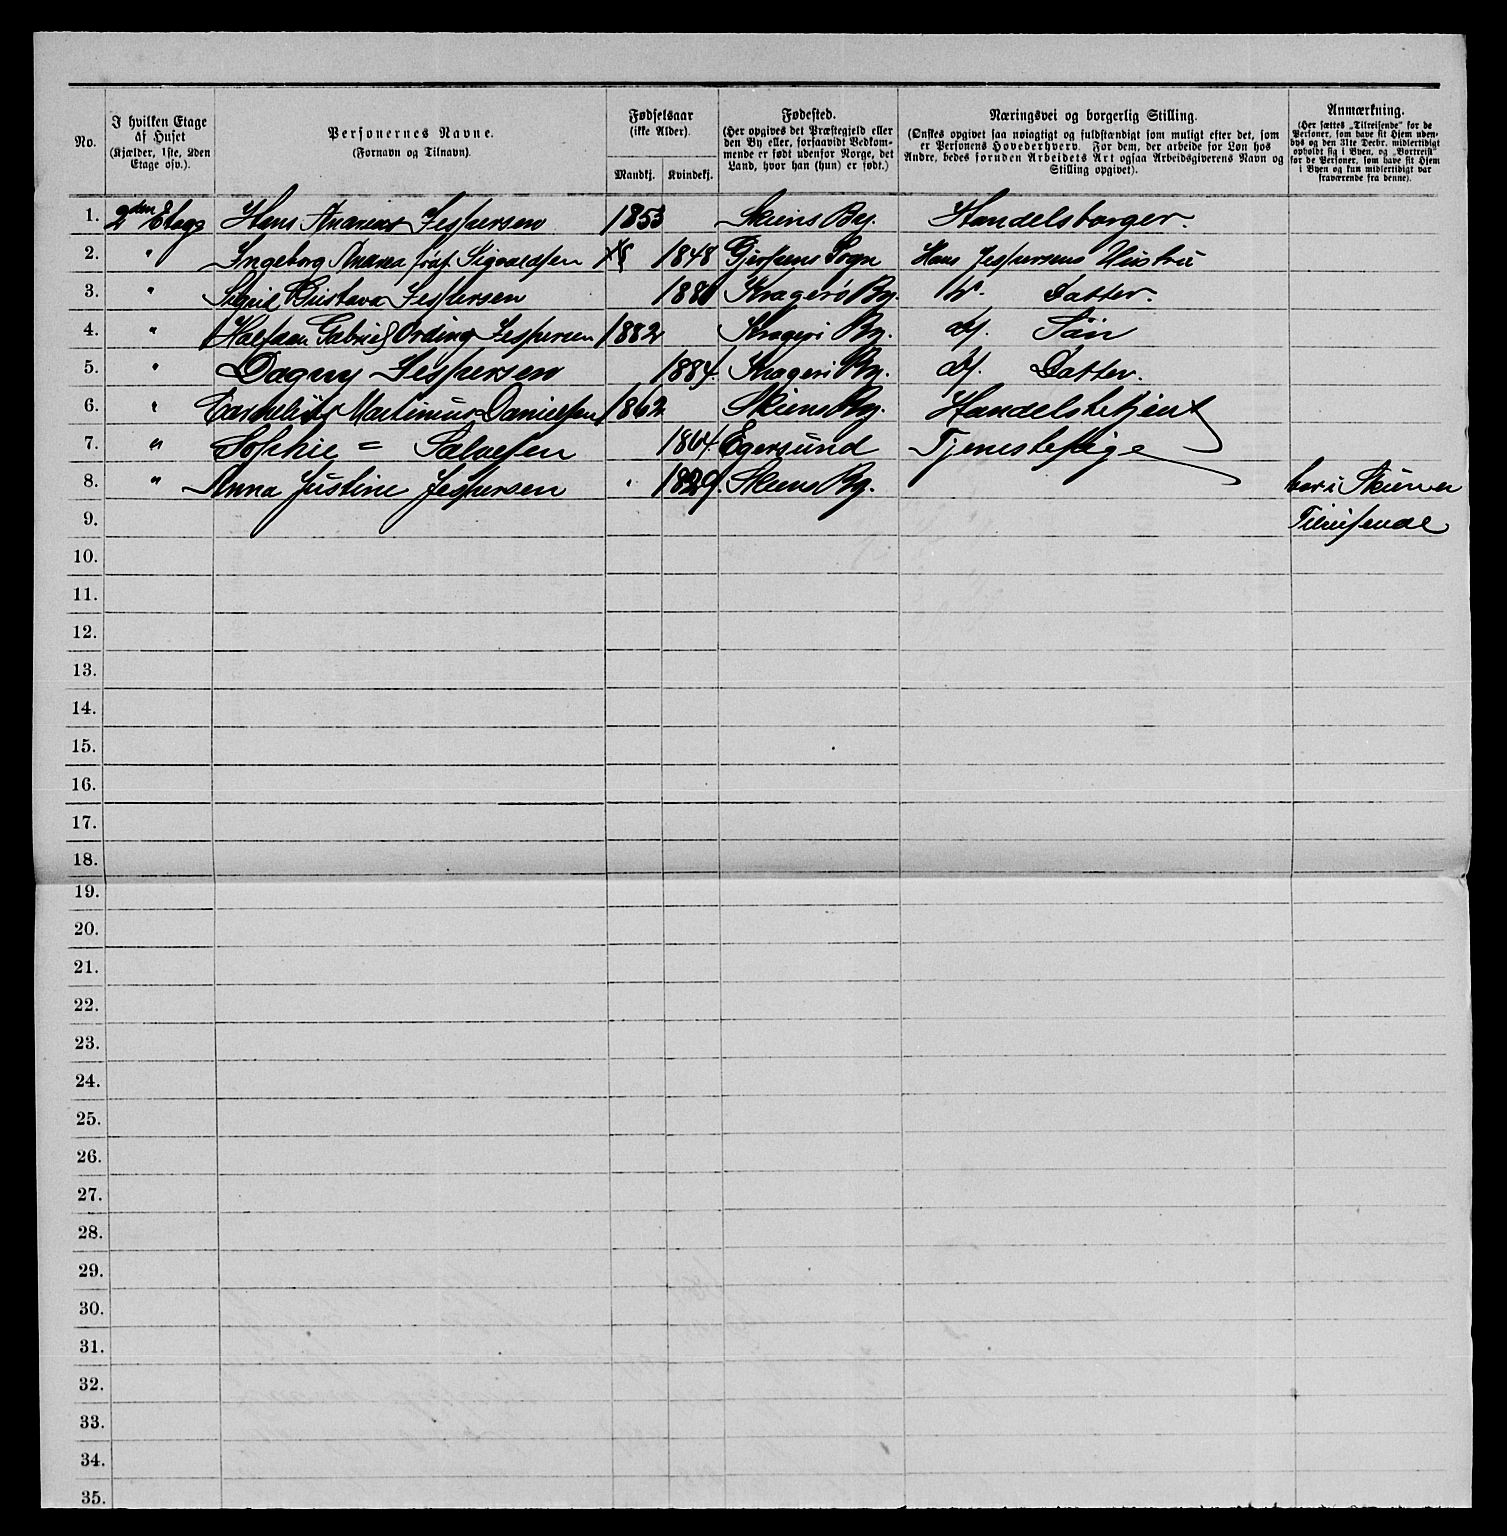 No.
I hvilken Etage af Huset (Kjælder, 1ste, 2den Etage osv.).
Personernes Navne. (Fornavn og Tilnavn).
Fødselsaar (ikke Alder). Mandkj. Kvindekj.
Fødested. (Her opgives det Præstegjeld eller den By eller, forsaavidt Vedkommende er født udenfor Norge, det Land, hvor han (hun) er født.)
Næringsvei og borgerlig Stilling. (Ønskes opgivet saa nøiagtigt og fuldstændigt som muligt efter det, som er Personens Hovederhverv. For dem, der arbeide for Løn hos Andre, bedes foruden Arbeidets Art ogsaa Arbeidsgiverens Navn og Stilling opgivet).
Anmærkning. (Her sættes „Tilreisende" for de Personer, som have sit Hjem udenbys og den 31te Decbr. midlertidigt opholdt sig i Byen, og „Bortreist" for de Personer, som have sit Hjem i Byen og kun midlertidigt var fraværende fra denne).
1. 2den Etage Hans Andreas Jespersen 1853 Skiens By. Handelsborger.
2. " Ingeborg Andrea født Sigvaldsen 1848 Gjerpens Sogn Hans Jespersens Hustru
3. " Gustava Jespersen 188 Kragerø By. Datter.
4. " Halfdan Gabriel Ording Jespersen 1882 Kragerø By. d. Søn
5. " Dagny Jespersen 1884. Kragerø By. d. Datter.
6. " Martinius Danielsen 1862 Skiens By. Handelsbetjent
7. " Sophie = Salvesen 1864. Egersund Tjenestepige
8. " Anna Justine Jespersen 1829. Skiens By. bor i Skien
9. Tilreisende
10.
11.
12.
13.
14.
15.
16.
17.
18.
19.
20.
21.
22.
23.
24.
25.
26.
27.
28.
29.
30.
31.
32.
33.
34.
35.